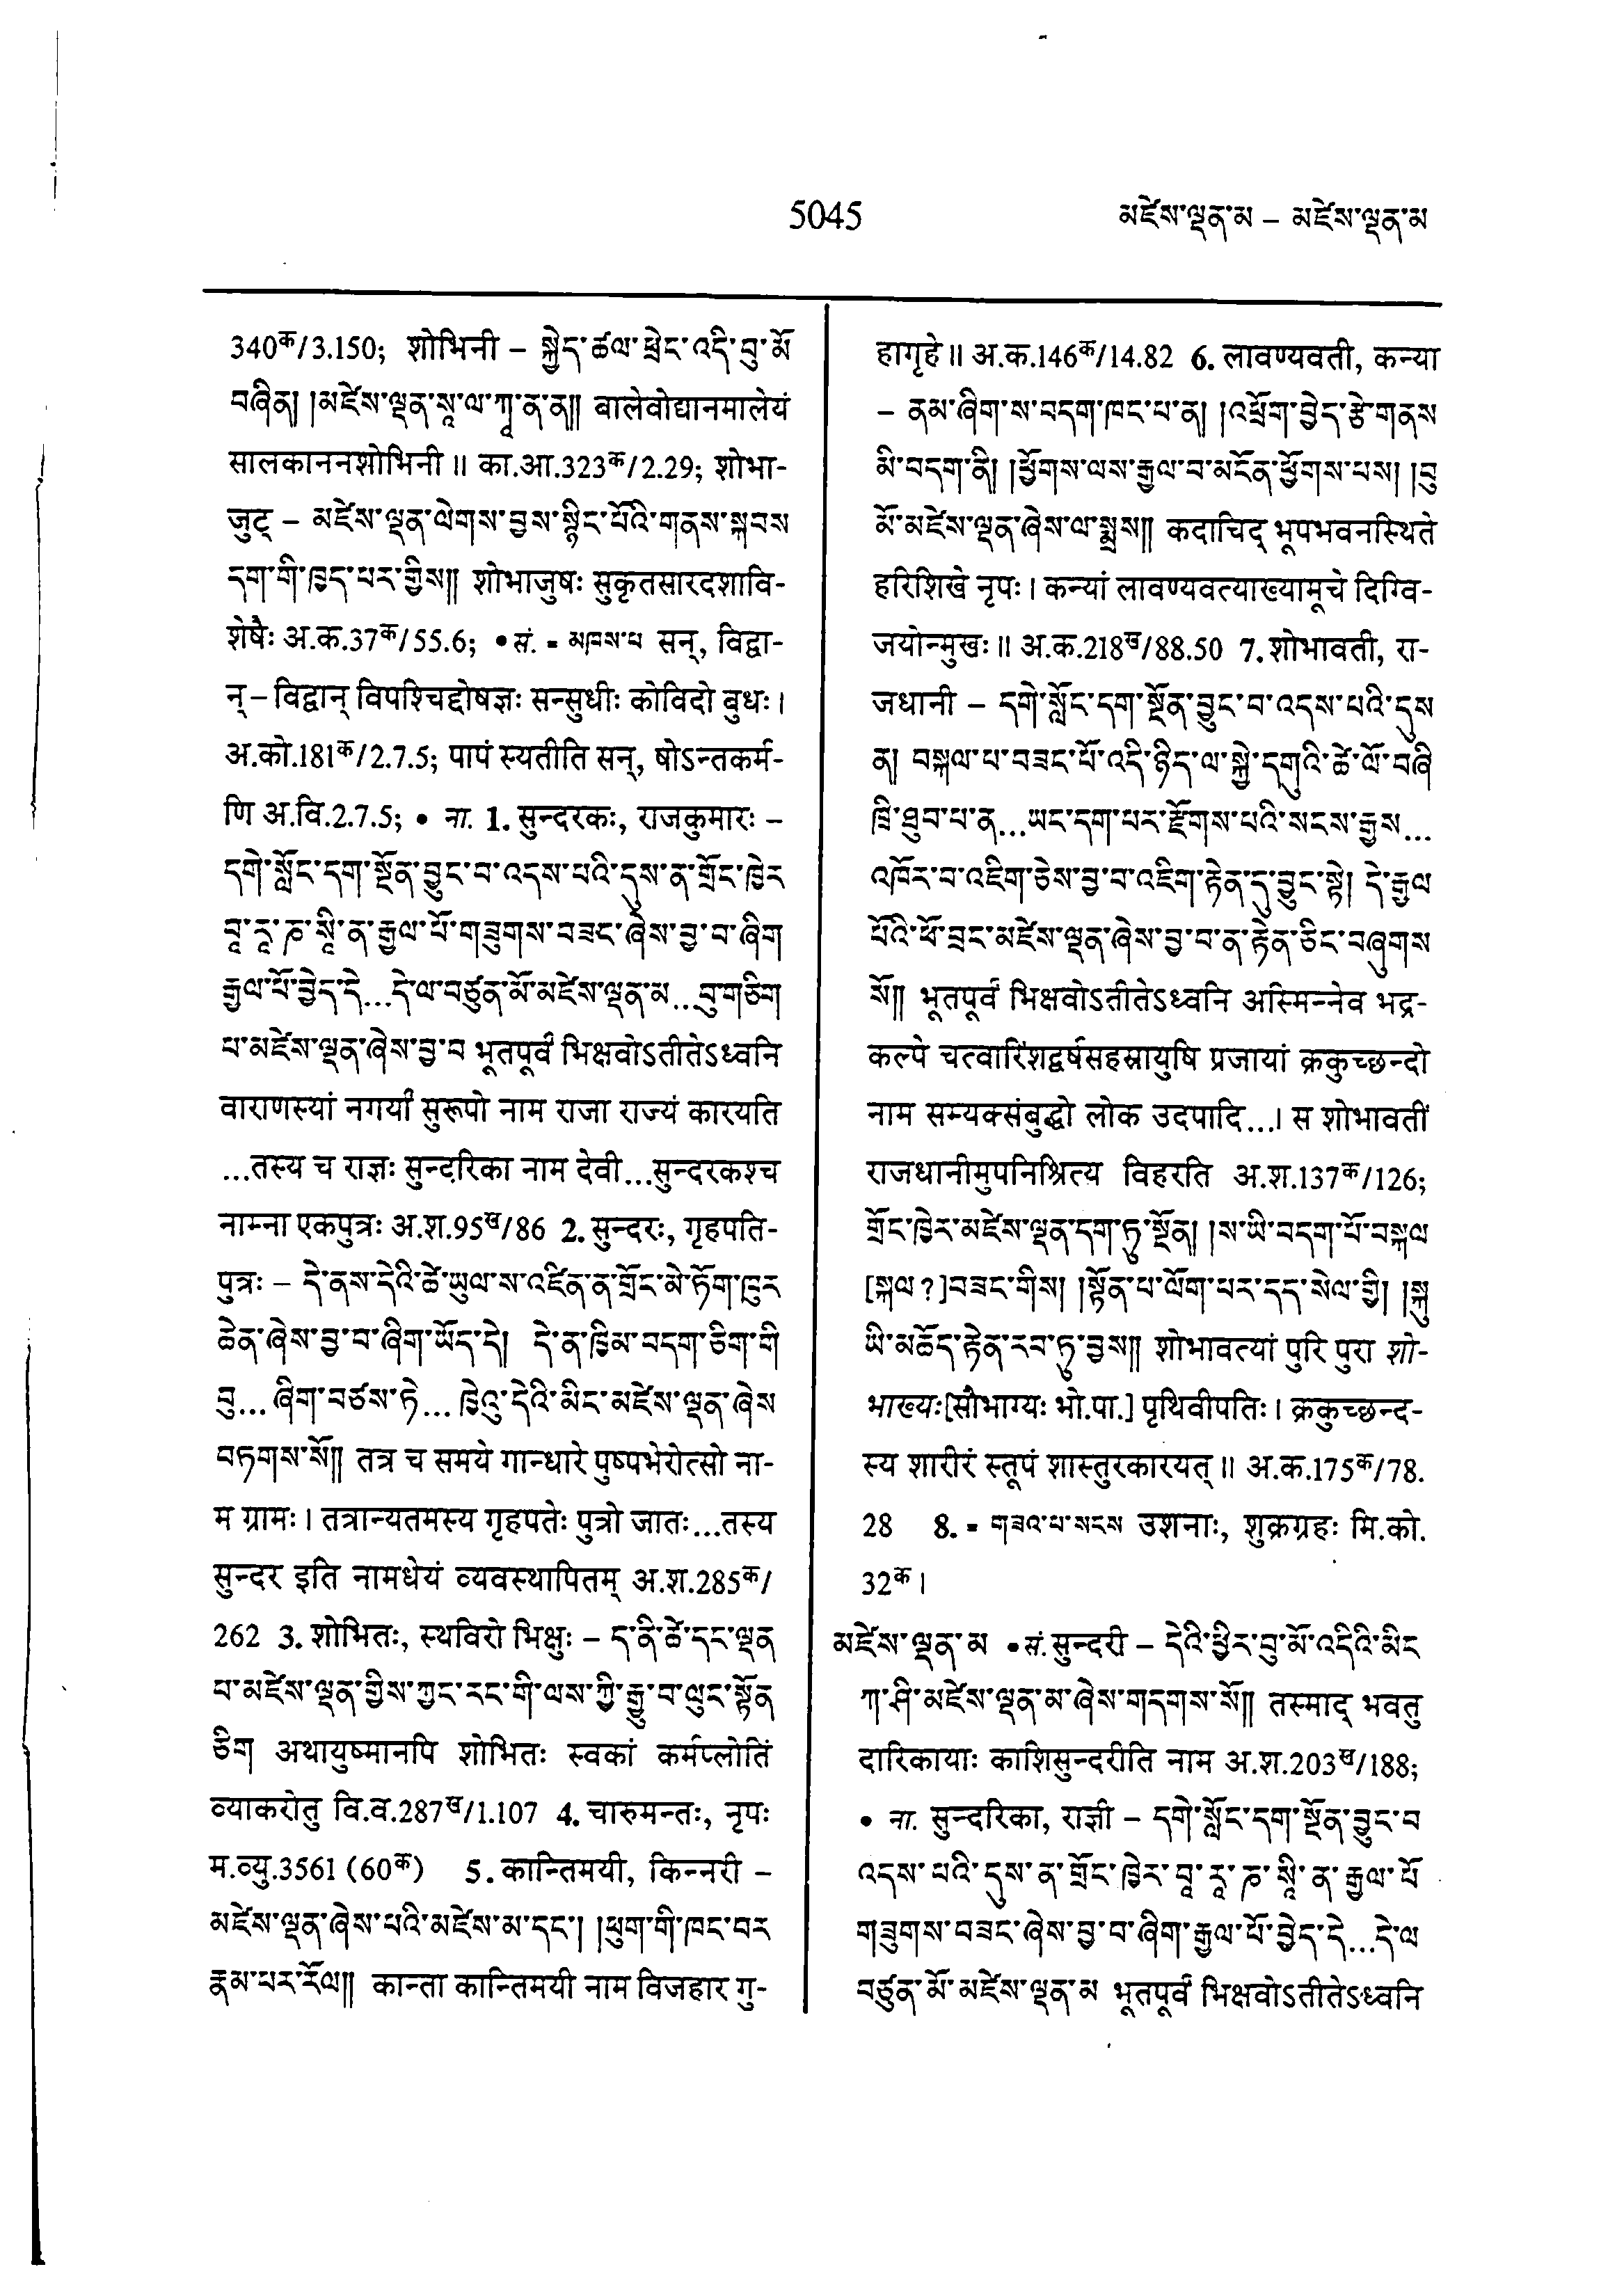 5045
མཛེས་ལྡན་མ – མཛེས་ལྡན་མ
340क/3.150; शोभिनी – སྐྱེད་ཚལ་ཕྲེང་འདི་བུ་མོ
བཞིན། །མཛེས་ལྡན་སཱ་ལ་ཀཱ་ན་ན།། बालेवोद्यानमालेयं
सालकाननशोभिनी॥ का.आ.323क/2.29; शोभा-
जुट् – མཛེས་ལྡན་ལེགས་བྱས་སྙིང་པོའི་གནས་སྐབས
དག་གི་ཁྱད་པར་གྱིས།། शोभाजुषः सुकृतसारदशावि-
शेषैः अ.क.37क/55.6; • सं. = མཁས་པ सन्, विद्वा-
न् – विद्वान् विपश्चिद्दोषज्ञः सन्सुधीः कोविदो बुधः।
अ.को.181क/2.7.5; पापं स्यतीति सन्, षोऽन्तकर्म-
णि अ.वि.2.7.5; • ना. 1. सुन्दरकः, राजकुमारः –
དགེ་སློང་དག་སྔོན་བྱུང་བ་འདས་པའི་དུས་ན་གྲོང་ཁྱེར
བཱ་རཱ་ཎ་སཱི་ན་རྒྱལ་པོ་གཟུགས་བཟང་ཞེས་བྱ་བ་ཞིག
རྒྱལ་པོ་བྱེད་དེ...དེ་ལ་བཙུན་མོ་མཛེས་ལྡན་མ...བུ་གཅིག
པ་མཛེས་ལྡན་ཞེས་བྱ་བ भूतपूर्वं भिक्षवोऽतीतेऽध्वनि
वाराणस्यां नगर्यां सुरूपो नाम राजा राज्यं कारयति
...तस्य च राज्ञः सुन्दरिका नाम देवी...सुन्दरकश्च
नाम्ना एकपुत्रः अ.श.95ख/86 2. सुन्दरः, गृहपति-
पुत्रः – དེ་ནས་དེའི་ཚེ་ཡུལ་ས་འཛིན་ན་གྲོང་མེ་ཏོག་ཁུར
ཆེན་ཞེས་བྱ་བ་ཞིག་ཡོད་དེ། དེ་ན་ཁྱིམ་བདག་ཅིག་གི
བུ...ཞིག་བཙས་ཏེ...ཁྱེའུ་དེའི་མིང་མཛེས་ལྡན་ཞེས
བཏགས་སོ།། तत्र च समये गान्धारे पुष्पभेरोत्सो ना-
म ग्रामः। तत्रान्यतमस्य गृहपतेः पुत्रो जातः...तस्य
सुन्दर इति नामधेयं व्यवस्थापितम् अ.श.285क/
262 3. शोभितः, स्थविरो भिक्षुः – ད་ནི་ཚེ་དང་ལྡན
པ་མཛེས་ལྡན་གྱིས་ཀྱང་རང་གི་ལས་ཀྱི་རྒྱུ་བ་ལུང་སྟོན
ཅིག अथायुष्मानपि शोभितः स्वकां कर्मप्लोतिं
व्याकरोतु वि.व.287ख/1.107 4. चारुमन्तः, नृपः
म.व्यु.3561 (60क) 5. कान्तिमयी, किन्नरी –
མཛེས་ལྡན་ཞེས་པའི་མཛེས་མ་དང་། །ཕུག་གི་ཁང་བར
རྣམ་པར་རོལ།། कान्ता कान्तिमयी नाम विजहार गु-
हागृहे॥ अ.क.146क/14.82 6. लावण्यवती, कन्या
– ནམ་ཞིག་ས་བདག་ཁང་པ་ན། །འཕྲོག་བྱེད་རྩེ་གནས
མི་བདག་ནི། །ཕྱོགས་ལས་རྒྱལ་བ་མངོན་ཕྱོགས་པས། །བུ
མོ་མཛེས་ལྡན་ཞེས་ལ་སྨྲས།། कदाचिद् भूपभवनस्थिते
हरिशिखे नृपः। कन्यां लावण्यवत्याख्यामूचे दिग्वि-
जयोन्मुखः॥ अ.क.218ख/88.50 7. शोभावती, रा-
जधानी – དགེ་སློང་དག་སྔོན་བྱུང་བ་འདས་པའི་དུས
ན། བསྐལ་པ་བཟང་པོ་འདི་ཉིད་ལ་སྐྱེ་དགུའི་ཚེ་ལོ་བཞི
ཁྲི་ཐུབ་པ་ན...ཡང་དག་པར་རྫོགས་པའི་སངས་རྒྱས...
འཁོར་བ་འཇིག་ཅེས་བྱ་བ་འཇིག་རྟེན་དུ་བྱུང་སྟེ། དེ་རྒྱལ
པོའི་ཕོ་བྲང་མཛེས་ལྡན་ཞེས་བྱ་བ་ན་རྟེན་ཅིང་བཞུགས
སོ།། भूतपूर्वं भिक्षवोऽतीतेऽध्वनि अस्मिन्नेव भद्र-
कल्पे चत्वारिंशद्वर्षसहस्रायुषि प्रजायां क्रकुच्छन्दो
नाम सम्यक्संबुद्धो लोक उदपादि...। स शोभावतीं
राजधानीमुपनिश्रित्य विहरति अ.श.137क/126;
གྲོང་ཁྱེར་མཛེས་ལྡན་དག་ཏུ་སྔོན། །ས་ཡི་བདག་པོ་བསྐལ
[སྐལ ?]བཟང་གིས། །སྟོན་པ་ལོག་པར་དད་སེལ་གྱི། །སྐུ
ཡི་མཆོད་རྟེན་རབ་ཏུ་བྱས།། शोभावत्यां पुरि पुरा शो-
भाख्यः[सौभाग्यः भो.पा.] पृथिवीपतिः। क्रकुच्छन्द-
स्य शारीरं स्तूपं शास्तुरकारयत्॥ अ.क.175क/78.
28 8. = གཟའ་པ་སངས उशनाः, शुक्रग्रहः मि.को.
32क।
མཛེས་ལྡན་མ • सं. सुन्दरी – དེའི་ཕྱིར་བུ་མོ་འདིའི་མིང
ཀ་ཤི་མཛེས་ལྡན་མ་ཞེས་གདགས་སོ།། तस्माद् भवतु
दारिकायाः काशिसुन्दरीति नाम अ.श.203ख/188;
• ना. सुन्दरिका, राज्ञी – དགེ་སློང་དག་སྔོན་བྱུང་བ
འདས་པའི་དུས་ན་གྲོང་ཁྱེར་བཱ་རཱ་ཎ་སཱི་ན་རྒྱལ་པོ
གཟུགས་བཟང་ཞེས་བྱ་བ་ཞིག་རྒྱལ་པོ་བྱེད་དེ...དེ་ལ
བཙུན་མོ་མཛེས་ལྡན་མ भूतपूर्वं भिक्षवोऽतीतेऽध्वनि